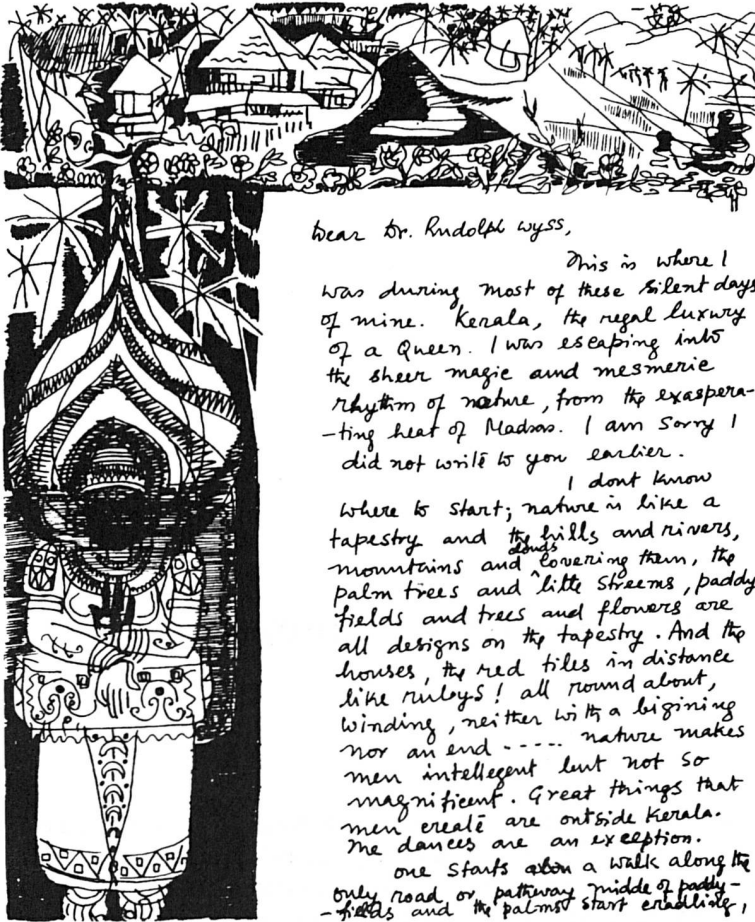 Dear Dr. Rudolph Wyss,
This is where I
was during most of these silent days
of mine. Kerala, the regal luxury
of a Queen. I was escaping into
the sheer magic and mesmeric
rhythm of nature, from the exaspera-
-ting heat of Madras. I am sorry I
did not write to you earlier.
I dont know
where to start; nature is like a
tapestry and the hills and rivers,
mountains and clouds covering them, the
palm trees and little streems, paddy
fields and trees and flowers are
all designs on the tapestry. And the
houses, the red tiles in distance
like rubys! all round about,
winding, neither with a bigining
nor an end ----- nature makes
men intellegent but not so
magnificent. Great things that
men create are outside Kerala.
The dances are an exception.
one starts a walk along the
only road or pathway midde of paddy-
-fields and the palms start cradling,